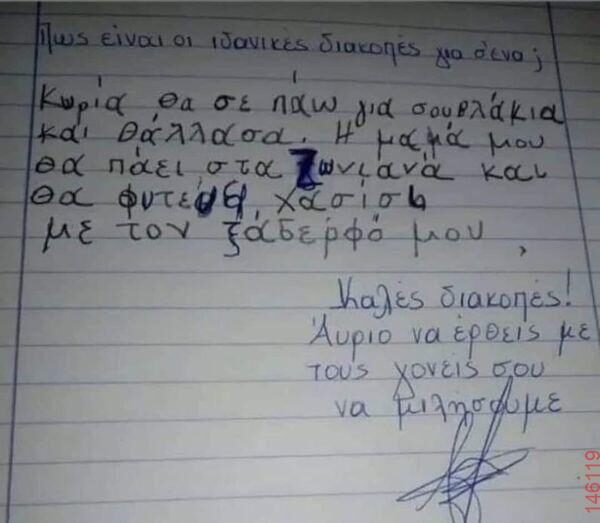 Πως είναι οι ιδανικές διακοπές για σένα;
Κωρία θα σε πάω για σουβλάκια
και θάλλασα. Η μαμά μου
θα πάει στα Ζωνιανά και
θα φυτεψη χασίσι
με τον ξάδερφό μου,
Καλές διακοπές!
Άυριο να έρθεις με
τους γονείς σου
να μιλήσουμε
146119